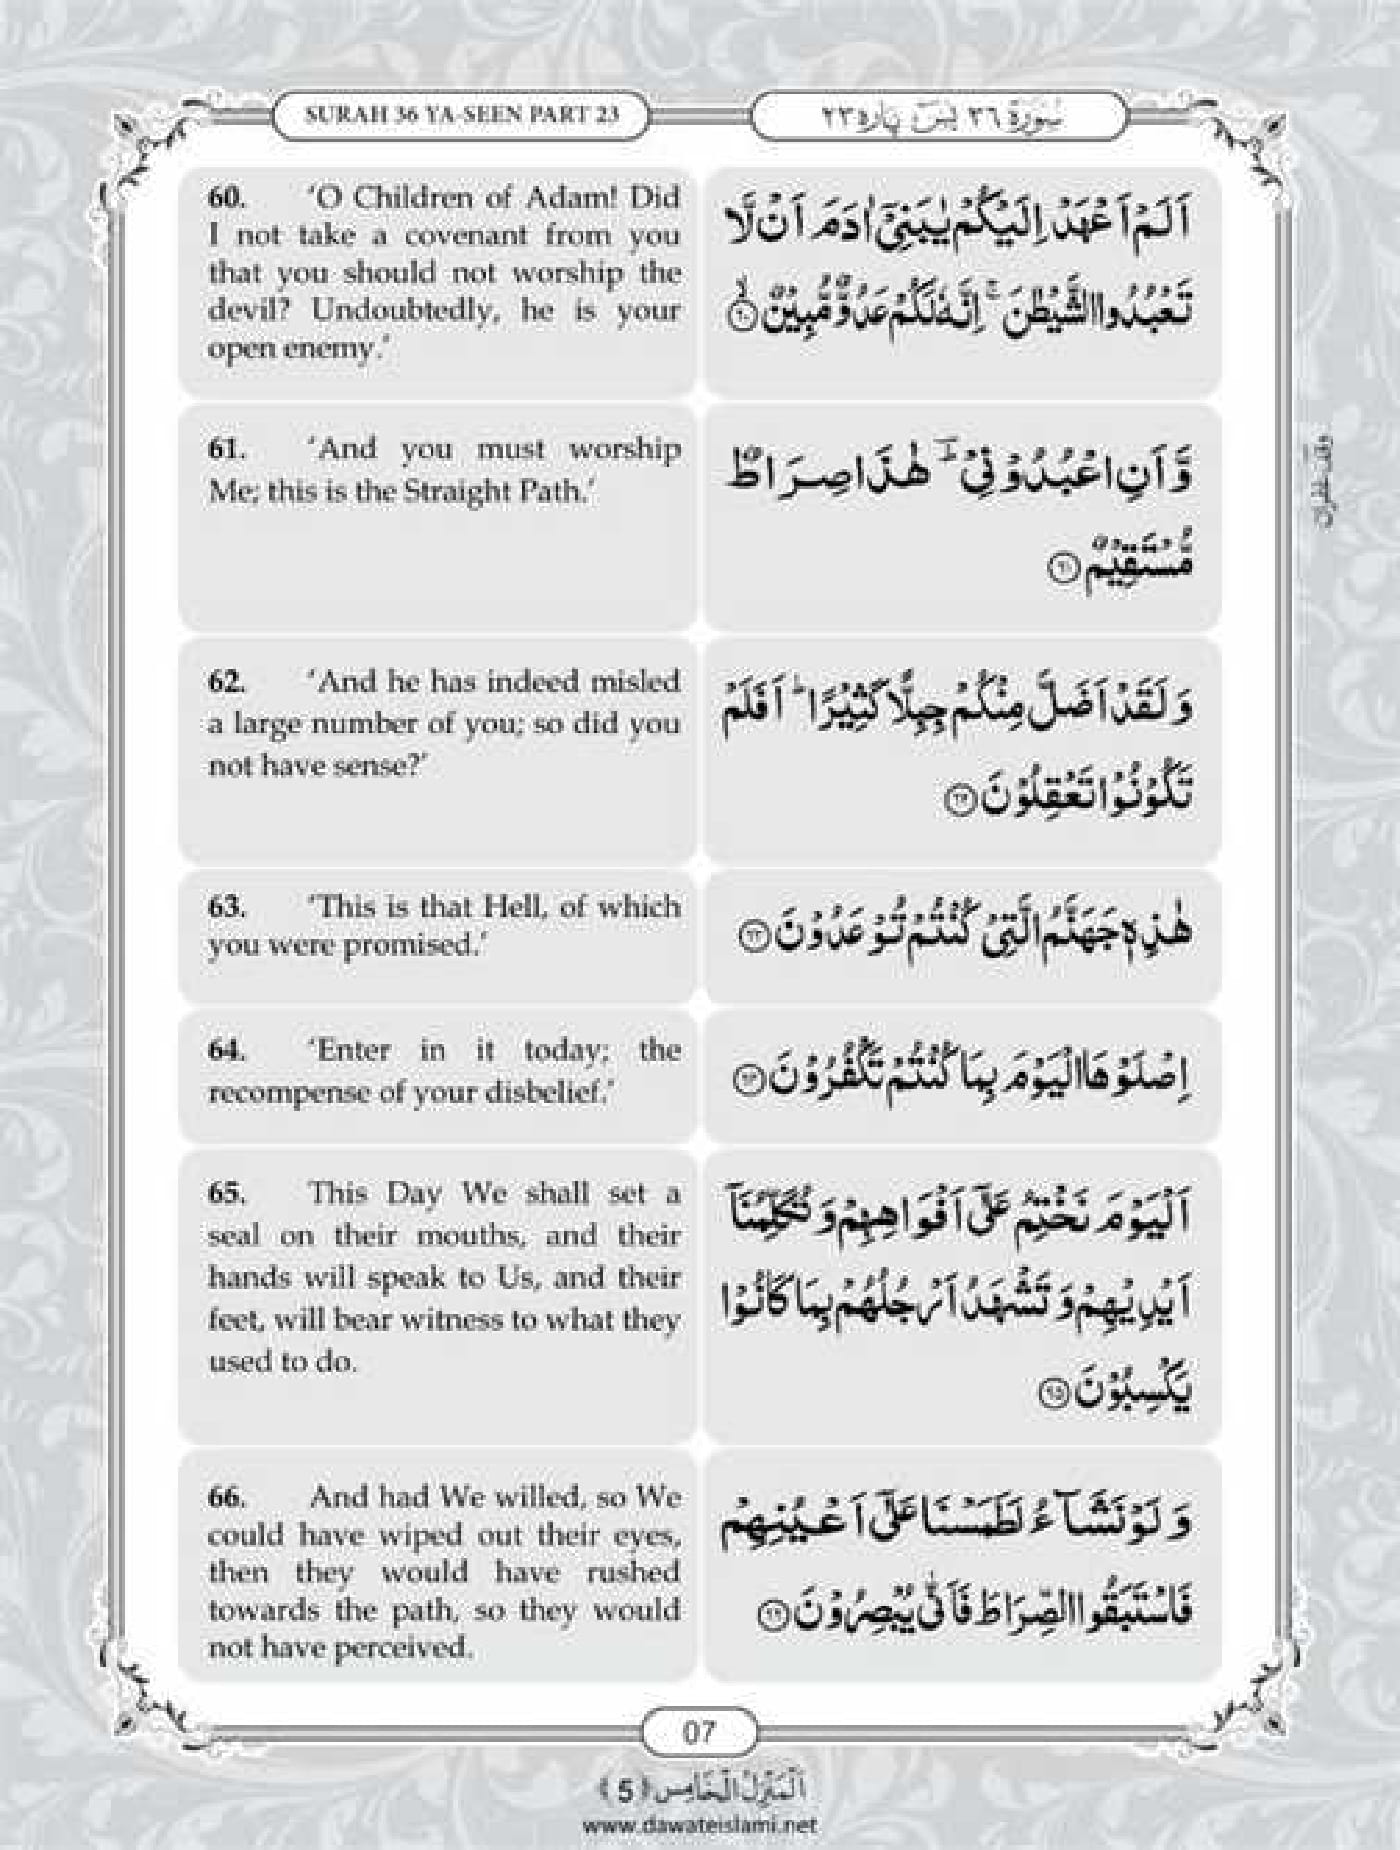 SURAH 36 YA-SEEN PART 23
سُوْرَةُ ٣٦ يٰسٓ پاره ٢٣
60. ‘O Children of Adam! Did
I not take a covenant from you
that you should not worship the
devil? Undoubtedly, he is your
open enemy.’
اَلَمْ اَعْهَدْ اِلَيْكُمْ يٰبَنِيْۤ اٰدَمَ اَنْ لَّا
تَعْبُدُوا الشَّيْطٰنَ ۚ اِنَّهٗ لَكُمْ عَدُوٌّ مُّبِيْنٌ ۙ﴿۶۰﴾
61. ‘And you must worship
Me; this is the Straight Path.’
وَّ اَنِ اعْبُدُوْنِيْ ؔ هٰذَا صِرَاطٌ
مُّسْتَقِيْمٌ ﴿۶۱﴾
62. ‘And he has indeed misled
a large number of you; so did you
not have sense?’
وَ لَقَدْ اَضَلَّ مِنْكُمْ جِبِلًّا كَثِيْرًا ؕ اَفَلَمْ
تَكُوْنُوْا تَعْقِلُوْنَ ﴿۶۲﴾
63. ‘This is that Hell, of which
you were promised.’
هٰذِهٖ جَهَنَّمُ الَّتِيْ كُنْتُمْ تُوْعَدُوْنَ ﴿۶۳﴾
64. ‘Enter in it today; the
recompense of your disbelief.’
اِصْلَوْهَا الْيَوْمَ بِمَا كُنْتُمْ تَكْفُرُوْنَ ﴿۶۴﴾
65. This Day We shall set a
seal on their mouths, and their
hands will speak to Us, and their
feet, will bear witness to what they
used to do.
اَلْيَوْمَ نَخْتِمُ عَلٰۤى اَفْوَاهِهِمْ وَ تُكَلِّمُنَاۤ
اَيْدِيْهِمْ وَ تَشْهَدُ اَرْجُلُهُمْ بِمَا كَانُوْا
يَكْسِبُوْنَ ﴿۶۵﴾
66. And had We willed, so We
could have wiped out their eyes,
then they would have rushed
towards the path, so they would
not have perceived.
وَ لَوْ نَشَآءُ لَطَمَسْنَا عَلٰۤى اَعْيُنِهِمْ
فَاسْتَبَقُوا الصِّرَاطَ فَاَنّٰى يُبْصِرُوْنَ ﴿۶۶﴾
وقف غفران
07
اَلْمَنْزِلُ الْخَامِس ﴿5﴾
www.dawateislami.net